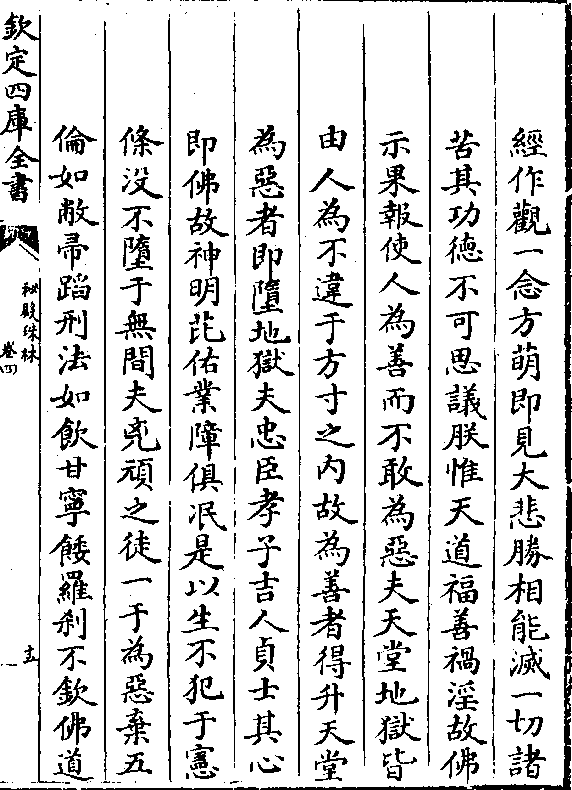 經作觀一念方萌即見大悲勝相能滅一切諸
苦其功德不可思議朕惟天道福善禍淫故佛
示果報使人為善而不敢為惡夫天堂地獄皆
由人為不違于方寸之内故為善者得升天堂
為惡者即墮地獄夫忠臣孝子吉人貞士其心
即佛故神明芘佑業障俱冺是以生不犯于憲
條没不墮于無間夫兇頑之徒一于為惡棄五
倫如敝帚蹈刑法如飲甘寧餧羅刹不欽佛道
欽定四庫全書
秘殿珠林
卷四
十五